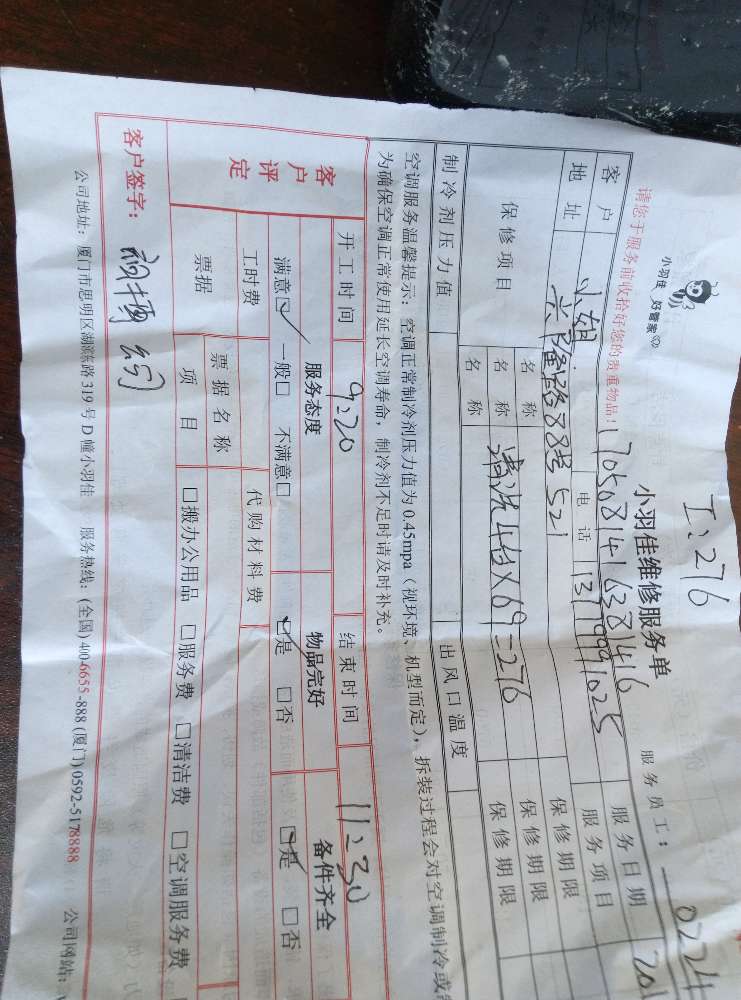 I:276
小羽佳 好管家
小羽佳维修服务单
1705081416381416
请您于服务前收拾好您的贵重物品!
服务员工: 0224
客户 小姐 电话 13799991025 服务日期 201
地址 兴隆路88号521 服务项目
保修项目 名称 保修期限
名称 清洗4台×69=276 保修期限
名称 保修期限
制冷剂压力值 出风口温度
空调服务温馨提示: 空调正常制冷剂压力值为 0.45mpa (视环境、机型而定), 拆装过程会对空调制冷或
为确保空调正常使用延长空调寿命, 制冷剂不足时请及时补充。
客户评定
开工时间 9:20 结束时间 11:30
服务态度 物品完好 备件齐全
满意☑ 一般□ 不满意□ ☑是 □否 ☑是 □否
工时费 代购材料费
票据 票据名称
项目 □搬办公用品 □服务费 □清洁费 □空调服务费
客户签字:
公司地址: 厦门市思明区湖滨东路 319 号 D 幢小羽佳 服务热线: (全国) 400-6655-888 (厦门) 0592-5178888 公司网站: